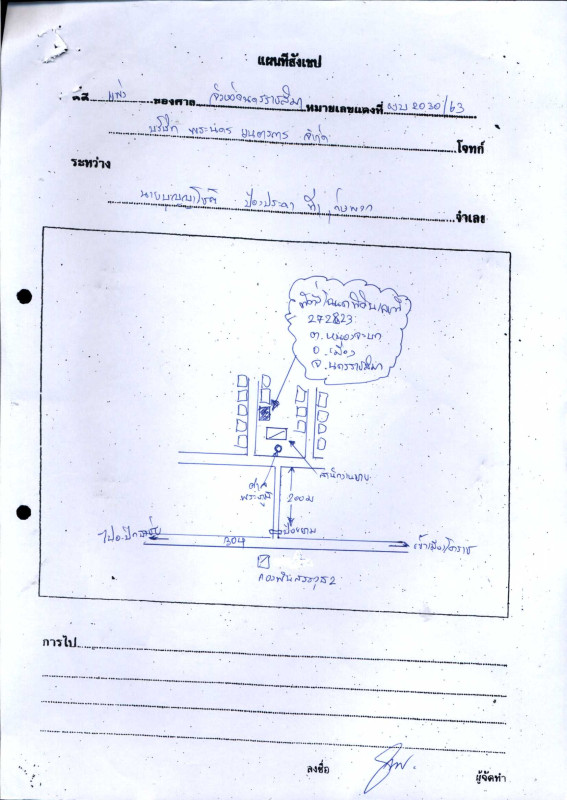 แผนที่สังเขป
คดี แพ่ง ของศาล จังหวัดนครราชสีมา หมายเลขแดงที่ ผบ 2030/63
บริษัท พระนคร ยนตรการ จำกัด โจทก์
ระหว่าง
นายบุญญโชติ ป้องประดา ที่1 จำเลย
ที่ตั้งโฉนดที่ดินเลขที่
272823
ต.หนองจะบก
อ.เมือง
จ.นครราชสีมา
สำนักงานขาย
ศาล
พระภูมิ
200ม
ป้อมยาม
ไปอ.ปักธงชัย
304
เข้าเมืองโคราช
กองพันสรรพาวุธ2
การไป
ลงชื่อ ผู้จัดทำ